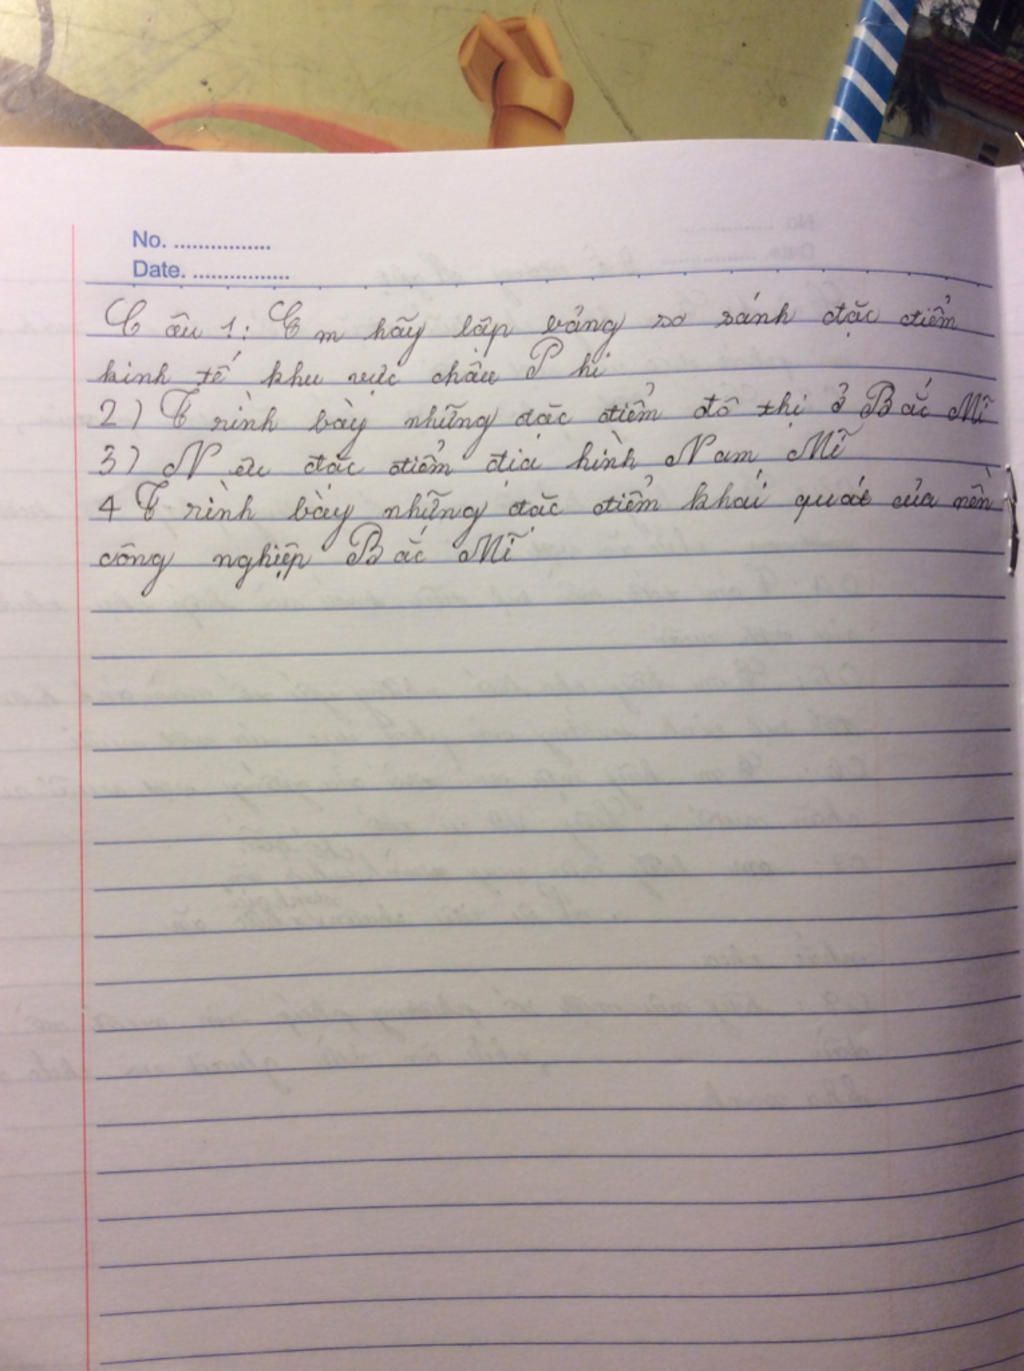 No. ................
Date. ................
Câu 1: Em hãy lập bảng so sánh đặc điểm
kinh tế khu vực châu Phi
2) Trình bày những đặc điểm đô thị ở Bắc Mĩ
3) Nêu đặc điểm địa hình Nam Mĩ
4 Trình bày những đặc điểm khái quát của nền
công nghiệp Bắc Mĩ